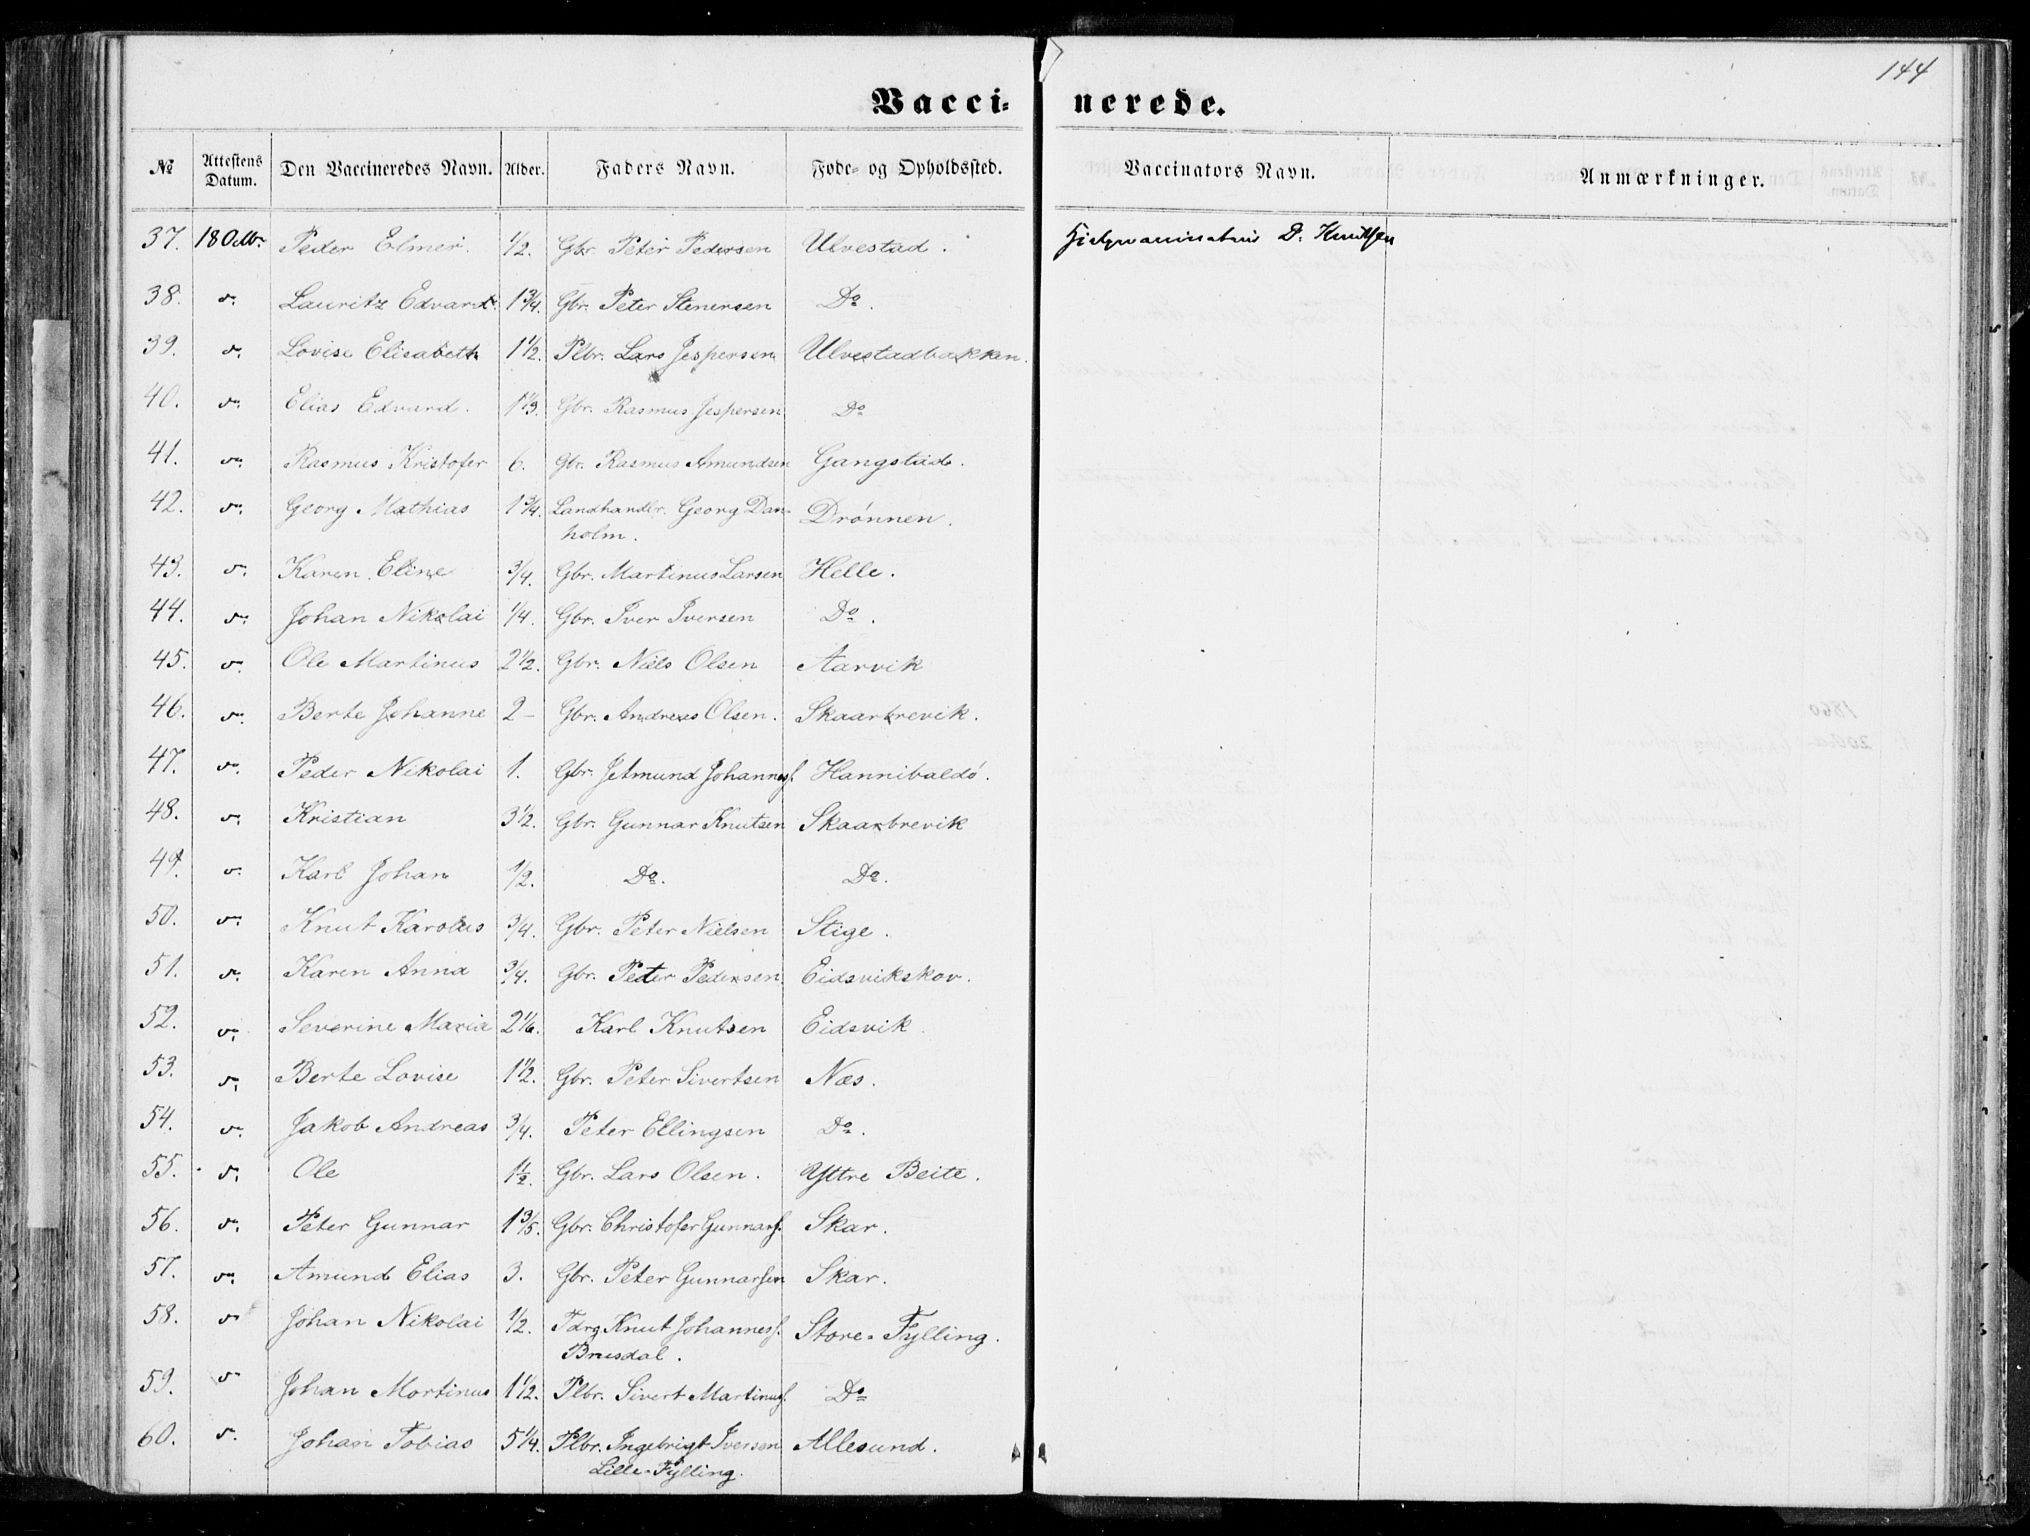 144
Vaccinerede.
№ Attestens Datum. Den Vaccineredes Navn. Alder. Faders Navn. Føde- og Opholdssted. Vaccinators Navn. Anmærkninger.
37. 18 Peder Elmer. 1/2. Gbr. Peter Pedersen Ulvestad. D. Knutsen
38. Lauritz Edvard 1 3/4. Gbr. Peter Stenersen Do.
39. Lovise Elisabeth 1 1/2. Plbr. Lars Jespersen Ulvestadbakken.
40. Elias Edvard. 1 1/3. Gbr. Rasmus Jespersen Do
41. Rasmus Kristofer 6. Gbr. Rasmus Amundsen Gangstad.
42. Georg Mathias 1 3/4. Landhandlr. Georg Dan- Drønnen.
holm.
43. Karen Eline 3/4. Gbr. Martinus Larsen Helle.
44. Johan Nikolai 1/4. Gbr. Iver Iversen Do.
45. Ole Martinus 2 1/2. Gbr. Niels Olsen Aarvik
46. Berte Johanne 2 – Gbr. Andreas Olsen. Skaarbrevik.
47. Peder Nikolai 1. Gbr. Jetmund Johanness. Hannibaldø.
48. Kristian 3 1/2. Gbr. Gunnar Knutsen Skaarbrevik
49. Karl Johan 1/2. Do. Do.
50. Knut Karolus 3/4. Gbr. Peter Nielsen Stige.
51. Karen Anna 3/4. Gbr. Peter Pedersen Eidsvikskov.
52. Severine Maria 2 1/6. Karl Knutsen Eidsvik
53. Berte Lovise 1 1/2. Gbr. Peter Sivertsen Næs.
54. Jakob Andreas 3/4. Peter Ellingsen Do.
55. Ole 1 1/2. Gbr. Lars Olsen. Yttre Beite.
56. Peter Gunnar 1 3/5. Gbr. Christofer Gunnars. Skar.
57. Amund Elias 3. Gbr. Peter Gunnarsen Skar.
58. Johan Nikolai 1/2. Knut Johanness. Store-Fylling.
Brusdal.
59. Johan Mortinus 1 1/2. Plbr. Sivert Martinuss. Do
60. Johan Tobias 5 1/4. Plbr. Ingebrigt Iversen Allesund.
Lille-Fylling.